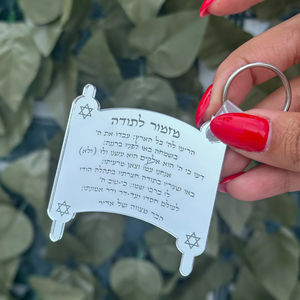 מזמור לתודה
הריעו לה' כל הארץ: עבדו את ה'
בשמחה באו לפניו ברננה:
דעו כי ה' הוא אלקים הוא עשנו ולו (ולא)
אנחנו עמו וצאן מרעיתו:
באו שעריו בתודה חצרתיו בתהלה הודו
לו ברכו שמו: כי טוב ה'
לעולם חסדו ועד דר ודר אמונתו: